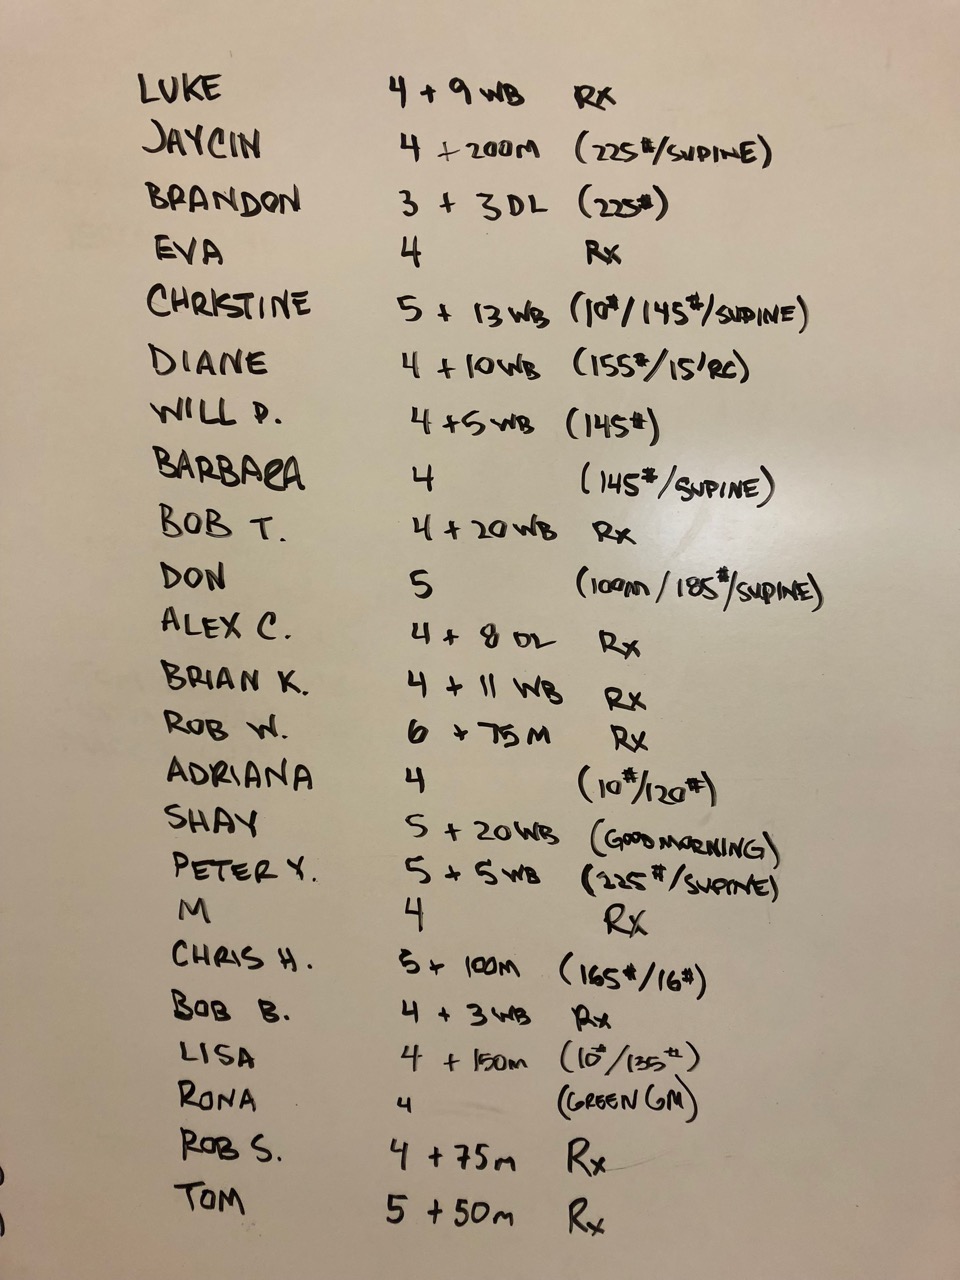 LUKE 4 + 9 WB Rx
JAYCIN 4 + 200M (225#/SUPINE)
BRANDON 3 + 3 DL (225#)
EVA 4 Rx
CHRISTINE 5 + 13 WB (10#/145#/SUPINE)
DIANE 4 + 10 WB (155#/15' RC)
WILL P. 4 + 5 WB (145#)
BARBARA 4 (145#/SUPINE)
BOB T. 4 + 20 WB Rx
DON 5 (100m/185#/SUPINE)
ALEX C. 4 + 8 DL Rx
BRIAN K. 4 + 11 WB Rx
ROB W. 6 + 75 M Rx
ADRIANA 4 (10#/120#)
SHAY 5 + 20 WB (GOOD MORNING)
PETER Y. 5 + 5 WB (225#/SUPINE)
M 4 Rx
CHRIS H. 5 + 100m (165#/16#)
BOB B. 4 + 3 WB Rx
LISA 4 + 150m (10#/135#)
RONA 4 (GREEN GM)
ROB S. 4 + 75m Rx
TOM 5 + 50m Rx